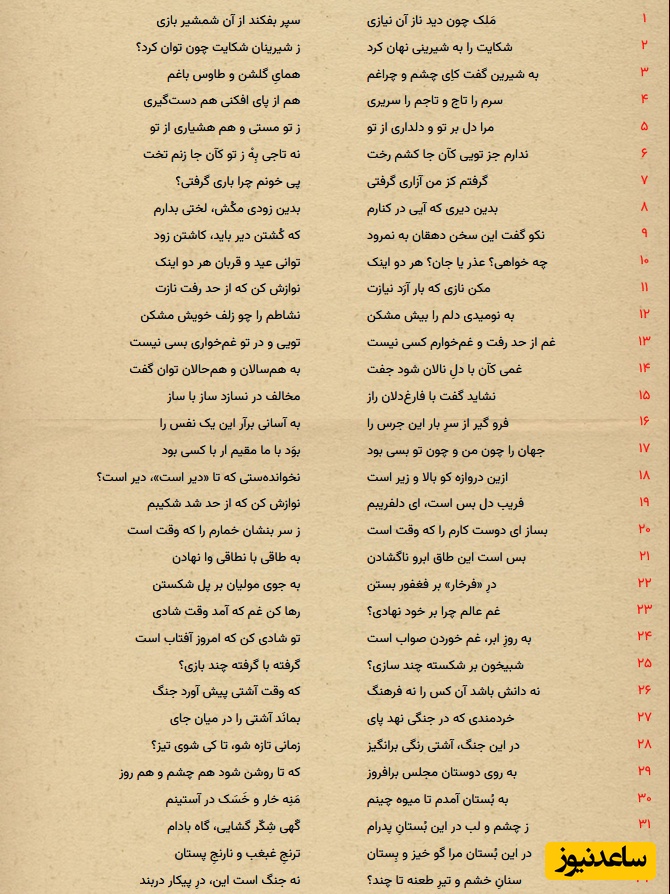 ۱ مَلک چون دید ناز آن نیازی سپر بفکند از آن شمشیر بازی
۲ شکایت را به شیرینی نهان کرد ز شیرینان شکایت چون توان کرد؟
۳ به شیرین گفت کایِ چشم و چراغم همایِ گلشن و طاوس باغم
۴ سرم را تاج و تاجم را سریری هم از پای افکنی هم دست‌گیری
۵ مرا دل بر تو و دلداری از تو ز تو مستی و هم هشیاری از تو
۶ ندارم جز تویی کآن جا کشم رخت نه تاجی بِهْ ز تو کآن جا زنم تخت
۷ گرفتم کز من آزاری گرفتی پی خونم چرا باری گرفتی؟
۸ بدین دیری که آیی در کنارم بدین زودی مکُش، لختی بدارم
۹ نکو گفت این سخن دهقان به نمرود که کُشتن دیر باید، کاشتن زود
۱۰ چه خواهی؟ عذر یا جان؟ هر دو اینک توانی عید و قربان هر دو اینک
۱۱ مکن نازی که بار آرَد نیازت نوازش کن که از حد رفت نازت
۱۲ به نومیدی دلم را بیش مشکن نشاطم را چو زلف خویش مشکن
۱۳ غم از حد رفت و غم‌خوارم کسی نیست تویی و در تو غم‌خواری بسی نیست
۱۴ غمی کآن با دلِ نالان شود جفت به هم‌سالان و هم‌حالان توان گفت
۱۵ نشاید گفت با فارغ‌دلان راز مخالف در نسازد ساز با ساز
۱۶ فرو گیر از سرِ بار این جرس را به آسانی برآر این یک نفس را
۱۷ جهان را چون من و چون تو بسی بود بوَد با ما مقیم ار با کسی بود
۱۸ ازین دروازه کو بالا و زیر است نخوانده‌ستی که تا «دیر است»، دیر است؟
۱۹ فریب دل بس است، ای دلفریبم نوازش کن که از حد شد شکیبم
۲۰ بساز ای دوست کارم را که وقت است ز سر بنشان خمارم را که وقت است
۲۱ بس است این طاق ابرو ناگشادن به طاقی با نطاقی وا نهادن
۲۲ درِ «فرخار» بر فغفور بستن به جوی مولیان بر پل شکستن
۲۳ غم عالم چرا بر خود نهادی؟ رها کن غم که آمد وقت شادی
۲۴ به روزِ ابر، غم خوردن صواب است تو شادی کن که امروز آفتاب است
۲۵ شبیخون بر شکسته چند سازی؟ گرفته با گرفته چند بازی؟
۲۶ نه دانش باشد آن کس را نه فرهنگ که وقت آشتی پیش آورد جنگ
۲۷ خردمندی که در جنگی نهد پای بماند آشتی را در میان جای
۲۸ در این جنگ، آشتی رنگی برانگیز زمانی تازه شو، تا کی شوی تیز؟
۲۹ به روی دوستان مجلس برافروز که تا روشن شود هم چشم و هم روز
۳۰ به بُستان آمدم تا میوه چینم مَنِه خار و خَسَک در آستینم
۳۱ ز چشم و لب در این بُستانِ پدرام گَهی شِکّر گشایی، گاه بادام
در این بُستان مرا گو خیز و بِستان ترنجِ غبغب و نارنجِ پستان
سنانِ خشم و تیرِ طعنه تا چند؟ نه جنگ است این، درِ پیکار دربند
ساعدنیوز